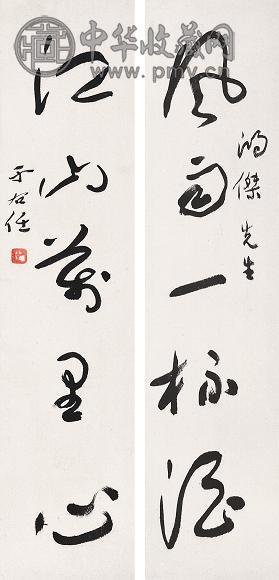 中华收藏网
www.pmv.cn
风雨一杯酒
鸿傑先生
江山万里心
于右任